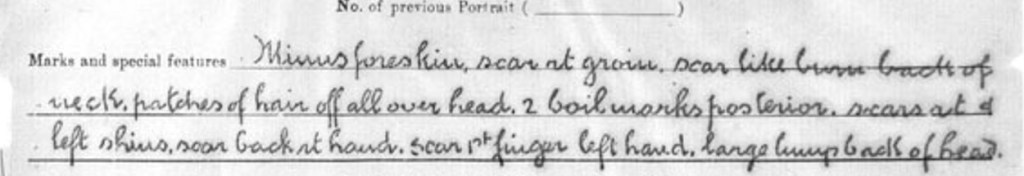 No. of previous Portrait ( )
Marks and special features Minus foreskin, scar rt groin. scar like burn back of
neck. patches of hair off all over head. 2 boil marks posterior. scars at &
left shins, scar back rt hand. scar 1st finger left hand. large lump back of head.